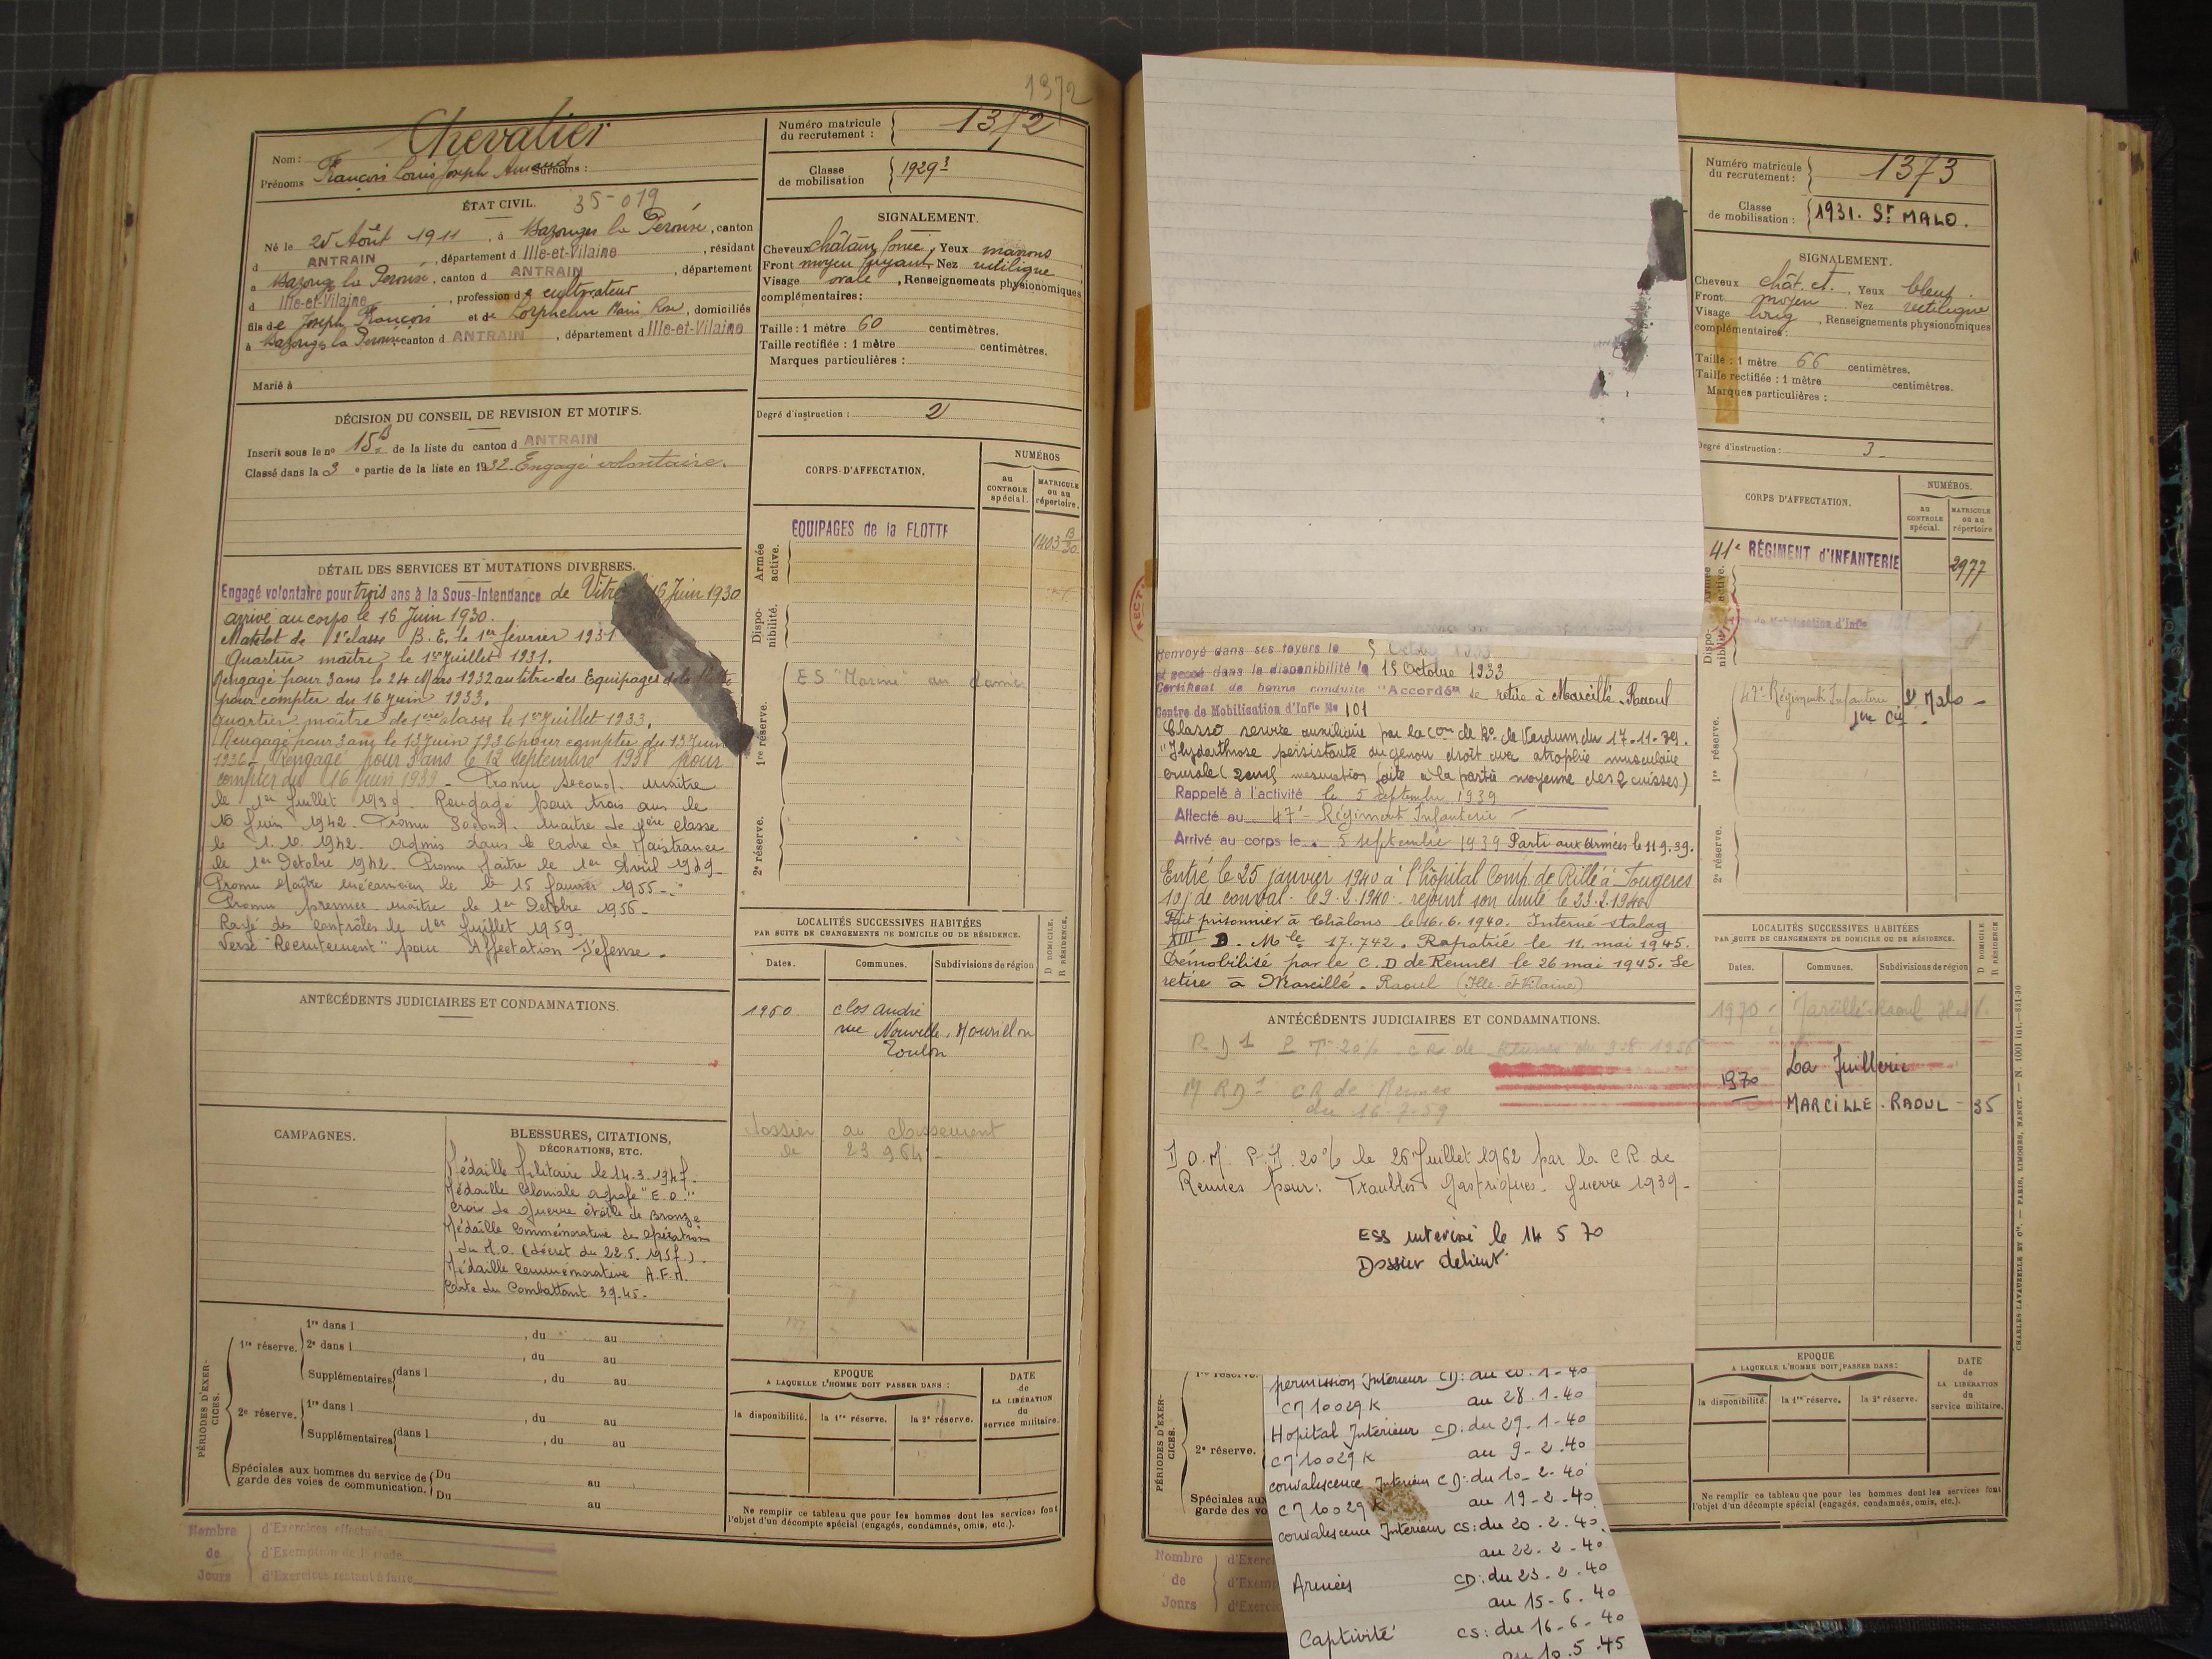 1372
Chevalier
Nom :
Prénoms François Louis Joseph Surnoms :
ÉTAT CIVIL. 35-019
Né le 25 Août 1911, à Bazouges la Pérouse, canton
d ANTRAIN, département d Ille-et-Vilaine, résidant
à Bazouges la Pérouse, canton d ANTRAIN, département
d Ille-et-Vilaine, profession de cultivateur
fils de Joseph François et de Lorphelin Marie Rose, domiciliés
à Bazouges la Pérouse canton d ANTRAIN, département d Ille-et-Vilaine
Marié à
DÉCISION DU CONSEIL DE REVISION ET MOTIFS.
Inscrit sous le n° 15 B de la liste du canton d ANTRAIN
Classé dans la 3 e partie de la liste en 1932. Engagé volontaire.
DÉTAIL DES SERVICES ET MUTATIONS DIVERSES.
Engagé volontaire pour trois ans à la Sous-Intendance de Vitré 16 Juin 1930
arrivé au corps le 16 Juin 1930.
Matelot de 2e classe B.E. le 1er février 1931
Quartier maître le 1er Juillet 1931.
Rengagé pour 3 ans le 24 Mars 1932 au titre des Equipages de la Flotte
pour compter du 16 Juin 1933.
quartier maître de 1ère classe le 1er Juillet 1933.
Rengagé pour 3 ans le 13 Juin 1936 pour compter du 13 Juin
1936 - Rengagé pour 3 ans le 12 septembre 1938 pour
compter du 16 juin 1939 - Promu Second. Maître
le 1er Juillet 1939. Rengagé pour trois ans le
16 Juin 1942. Promu Second. Maître de 1ère classe
le 1.10.1942. Admis dans le cadre de Maistrance
le 1er Octobre 1942. Promu Maître le 1er Avril 1949
Promu Maître mécanicien le 15 Janvier 1955 -
Promu premier maître le 1er Octobre 1956 -
Rayé des contrôles le 1er Juillet 1959.
Versé "Recrutement" pour Affectation Défense.
ANTÉCÉDENTS JUDICIAIRES ET CONDAMNATIONS.
CAMPAGNES.
BLESSURES, CITATIONS,
DÉCORATIONS, ETC.
Médaille Militaire le 14.3.1947.
Médaille Coloniale agrafe "E.O."
Croix de guerre étoile de Bronze
Médaille Commémorative des Opérations
du M.O. (décret du 22.5.1957).
Médaille Commémorative A.F.N.
Carte du Combattant 39-45.
PÉRIODES D'EXERCICES.
1re réserve. 1re dans l , du au
2e dans l , du au
Supplémentaires dans l , du au
2e réserve. 1re dans l , du au
Supplémentaires dans l , du au
Spéciales aux hommes du service de garde des voies de communication. Du au
Du au
Nombre de Jours
d'Exercices effectués
d'Exemption de Période
d'Exercices restant à faire
Numéro matricule du recrutement : 1372
Classe de mobilisation 1929 3
SIGNALEMENT.
Cheveux châtain foncé, Yeux marrons
Front moyen fuyant, Nez rectiligne
Visage ovale, Renseignements physionomiques
complémentaires :
Taille : 1 mètre 60 centimètres.
Taille rectifiée : 1 mètre centimètres.
Marques particulières :
Degré d'instruction : 2
CORPS D'AFFECTATION.
NUMÉROS
au CONTROLE spécial.
MATRICULE ou au répertoire.
Armée active.
EQUIPAGES de la FLOTTE 1403 B/30
Disponibilité.
1re réserve.
ES "Marine" au
2e réserve.
LOCALITÉS SUCCESSIVES HABITÉES
PAR SUITE DE CHANGEMENTS DE DOMICILE OU DE RÉSIDENCE.
D DOMICILE. R RÉSIDENCE.
Dates. Communes. Subdivisions de région
1960 clos André
rue Nouvelle, Mourillon
Toulon
dossier au classement
le 23 9 64 -
EPOQUE
A LAQUELLE L'HOMME DOIT PASSER DANS :
la disponibilité. la 1re réserve. la 2e réserve.
DATE de LA LIBÉRATION du service militaire.
Ne remplir ce tableau que pour les hommes dont les services font
l'objet d'un décompte spécial (engagés, condamnés, omis, etc.).
Renvoyé dans ses foyers le 5 Octobre 1933
et passé dans la disponibilité le 15 Octobre 1933
Certificat de bonne conduite "Accordé" se retire à Marcillé-Raoul
Centre de Mobilisation d'Infie No 101
Classé service auxiliaire par la con de Re. de Verdun du 17.11.39.
"Hydarthrose persistante du genou droit avec atrophie musculaire
crurale (2cm, mensuration faite à la partie moyenne des 2 cuisses)
Rappelé à l'activité le 5 septembre 1939
Affecté au 47e Régiment Infanterie
Arrivé au corps le 5 septembre 1939 Parti aux armées le 11.9.39.
Entré le 25 janvier 1940 à l'hôpital Comp. de Rillé à Fougères
10j de conval. le 9.2.1940 - rejoint son unité le 23.2.1940
Fait prisonnier à Châlons le 16.6.1940. Interné stalag
XIII D. Mle 17.742. Rapatrié le 11. mai 1945.
Démobilisé par le C.D de Rennes le 26 mai 1945. Se
retire à Marcillé-Raoul (Ille-et-Vilaine)
ANTÉCÉDENTS JUDICIAIRES ET CONDAMNATIONS.
R D 1 P T 20% CR de Rennes du 3-8-1956
M RD 1 CR de Rennes
du 16-7-59
P.D. 20% le 26 Juillet 1962 par la CR de
Rennes pour : Troubles gastriques. Guerre 1939-
ESS interieur le 14 5 70
Dossier
permission Intérieur CD: au 20.1-40
C7 10029K au 28.1-40
Hopital Intérieur CD: du 29.1-40
C7 10029K au 9-2-40
convalescence Intérieur CD: du 10-2-40
C7 10029K au 19-2-40
convalescence Intérieur CS: du 20.2.40
au 22.2-40
Armées CD: du 23-2.40
au 15-6.40
Captivité CS: du 16-6-40
au 10.5.45
PÉRIODES D'EXERCICES.
1re réserve.
2e réserve.
Spéciales aux
garde des vo
Nombre de Jours
d'Exerci
d'Exemp
d'Exerci
Numéro matricule du recrutement : 1373
Classe de mobilisation : 1931. St MALO.
SIGNALEMENT.
Cheveux chât. ct., Yeux bleus.
Front moyen Nez rectiligne
Visage long, Renseignements physionomiques
complémentaires :
Taille : 1 mètre 66 centimètres.
Taille rectifiée : 1 mètre centimètres.
Marques particulières :
Degré d'instruction : 3
CORPS D'AFFECTATION.
NUMÉROS.
au CONTROLE spécial.
MATRICULE ou au répertoire
41e RÉGIMENT d'INFANTERIE 2977
de Mobilisation d'Infie
47e Régiment Infanterie St Malo -
1re Cie
1re réserve.
2e réserve.
LOCALITÉS SUCCESSIVES HABITÉES
PAR SUITE DE CHANGEMENTS DE DOMICILE OU DE RÉSIDENCE.
D DOMICILE R RÉSIDENCE
Dates. Communes. Subdivisions de région
1970 Marcillé-Raoul
1970 La Juillerie
MARCILLE-RAOUL - 35
EPOQUE
A LAQUELLE L'HOMME DOIT PASSER DANS :
la disponibilité. la 1re réserve. la 2e réserve.
DATE de LA LIBÉRATION du service militaire.
Ne remplir ce tableau que pour les hommes dont les services font
l'objet d'un décompte spécial (engagés, condamnés, omis, etc.).
CHARLES-LAVAUZELLE ET Cie. — PARIS, LIMOGES, NANCY. — N. 1001 int.—831-30